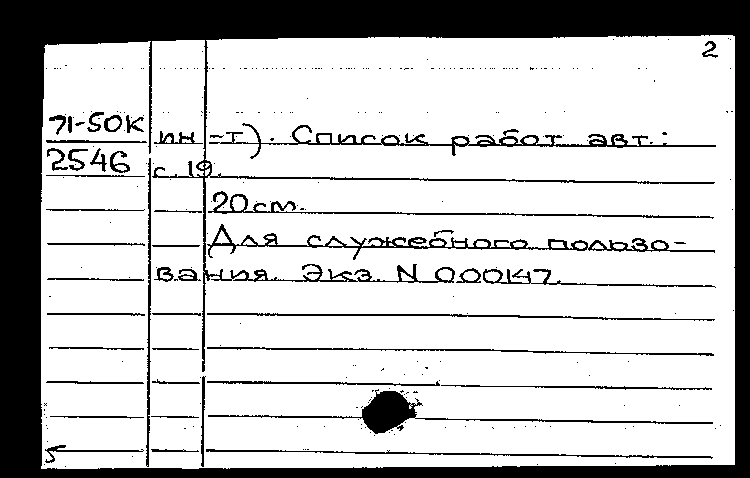 2
71-50к ин-т). Список работ авт.:
2546 с. 19.
20см.
Для служебного пользо-
вания. Экз. N 000147.
5